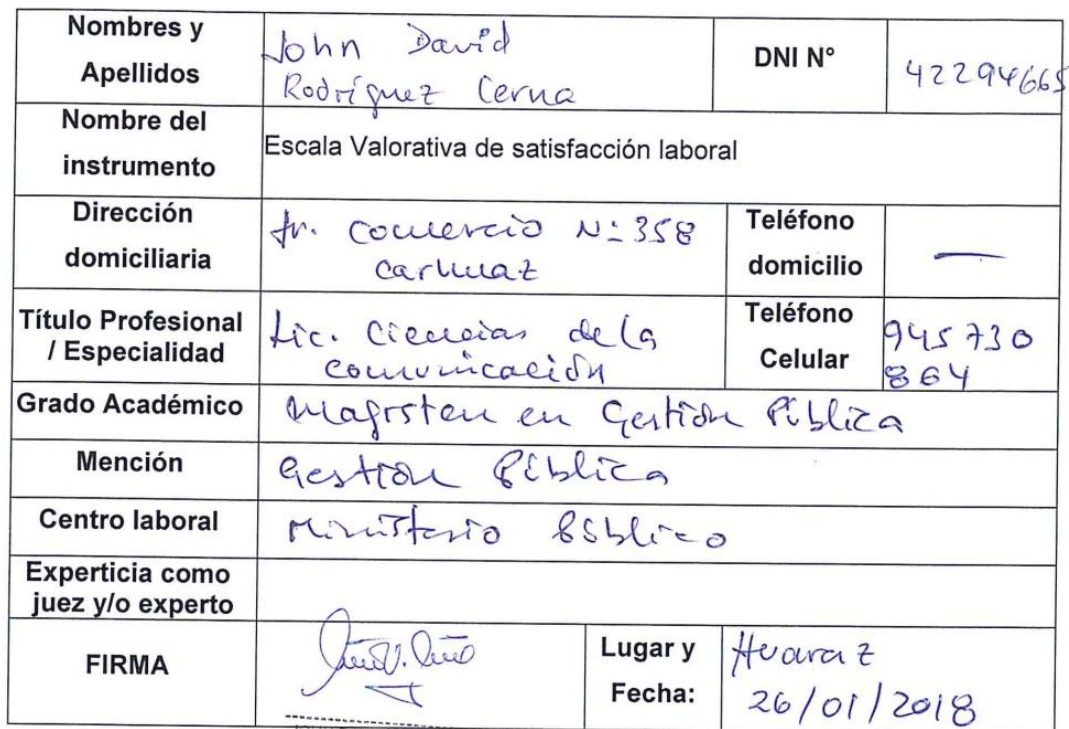 Nombres y
Apellidos
John David
Rodríguez Cerna
DNI N°
42294665
Nombre del
instrumento
Escala Valorativa de satisfacción laboral
Dirección
domiciliaria
Jr. Comercio N: 358
Carhuaz
Teléfono
domicilio
—
Título Profesional
/ Especialidad
Lic. Ciencias de la
comunicación
Teléfono
Celular
945 730
864
Grado Académico
Magister en Gestión Pública
Mención
Gestión Pública
Centro laboral
Ministerio Público
Experticia como
juez y/o experto
FIRMA
Lugar y
Fecha:
Huaraz
26/01/2018